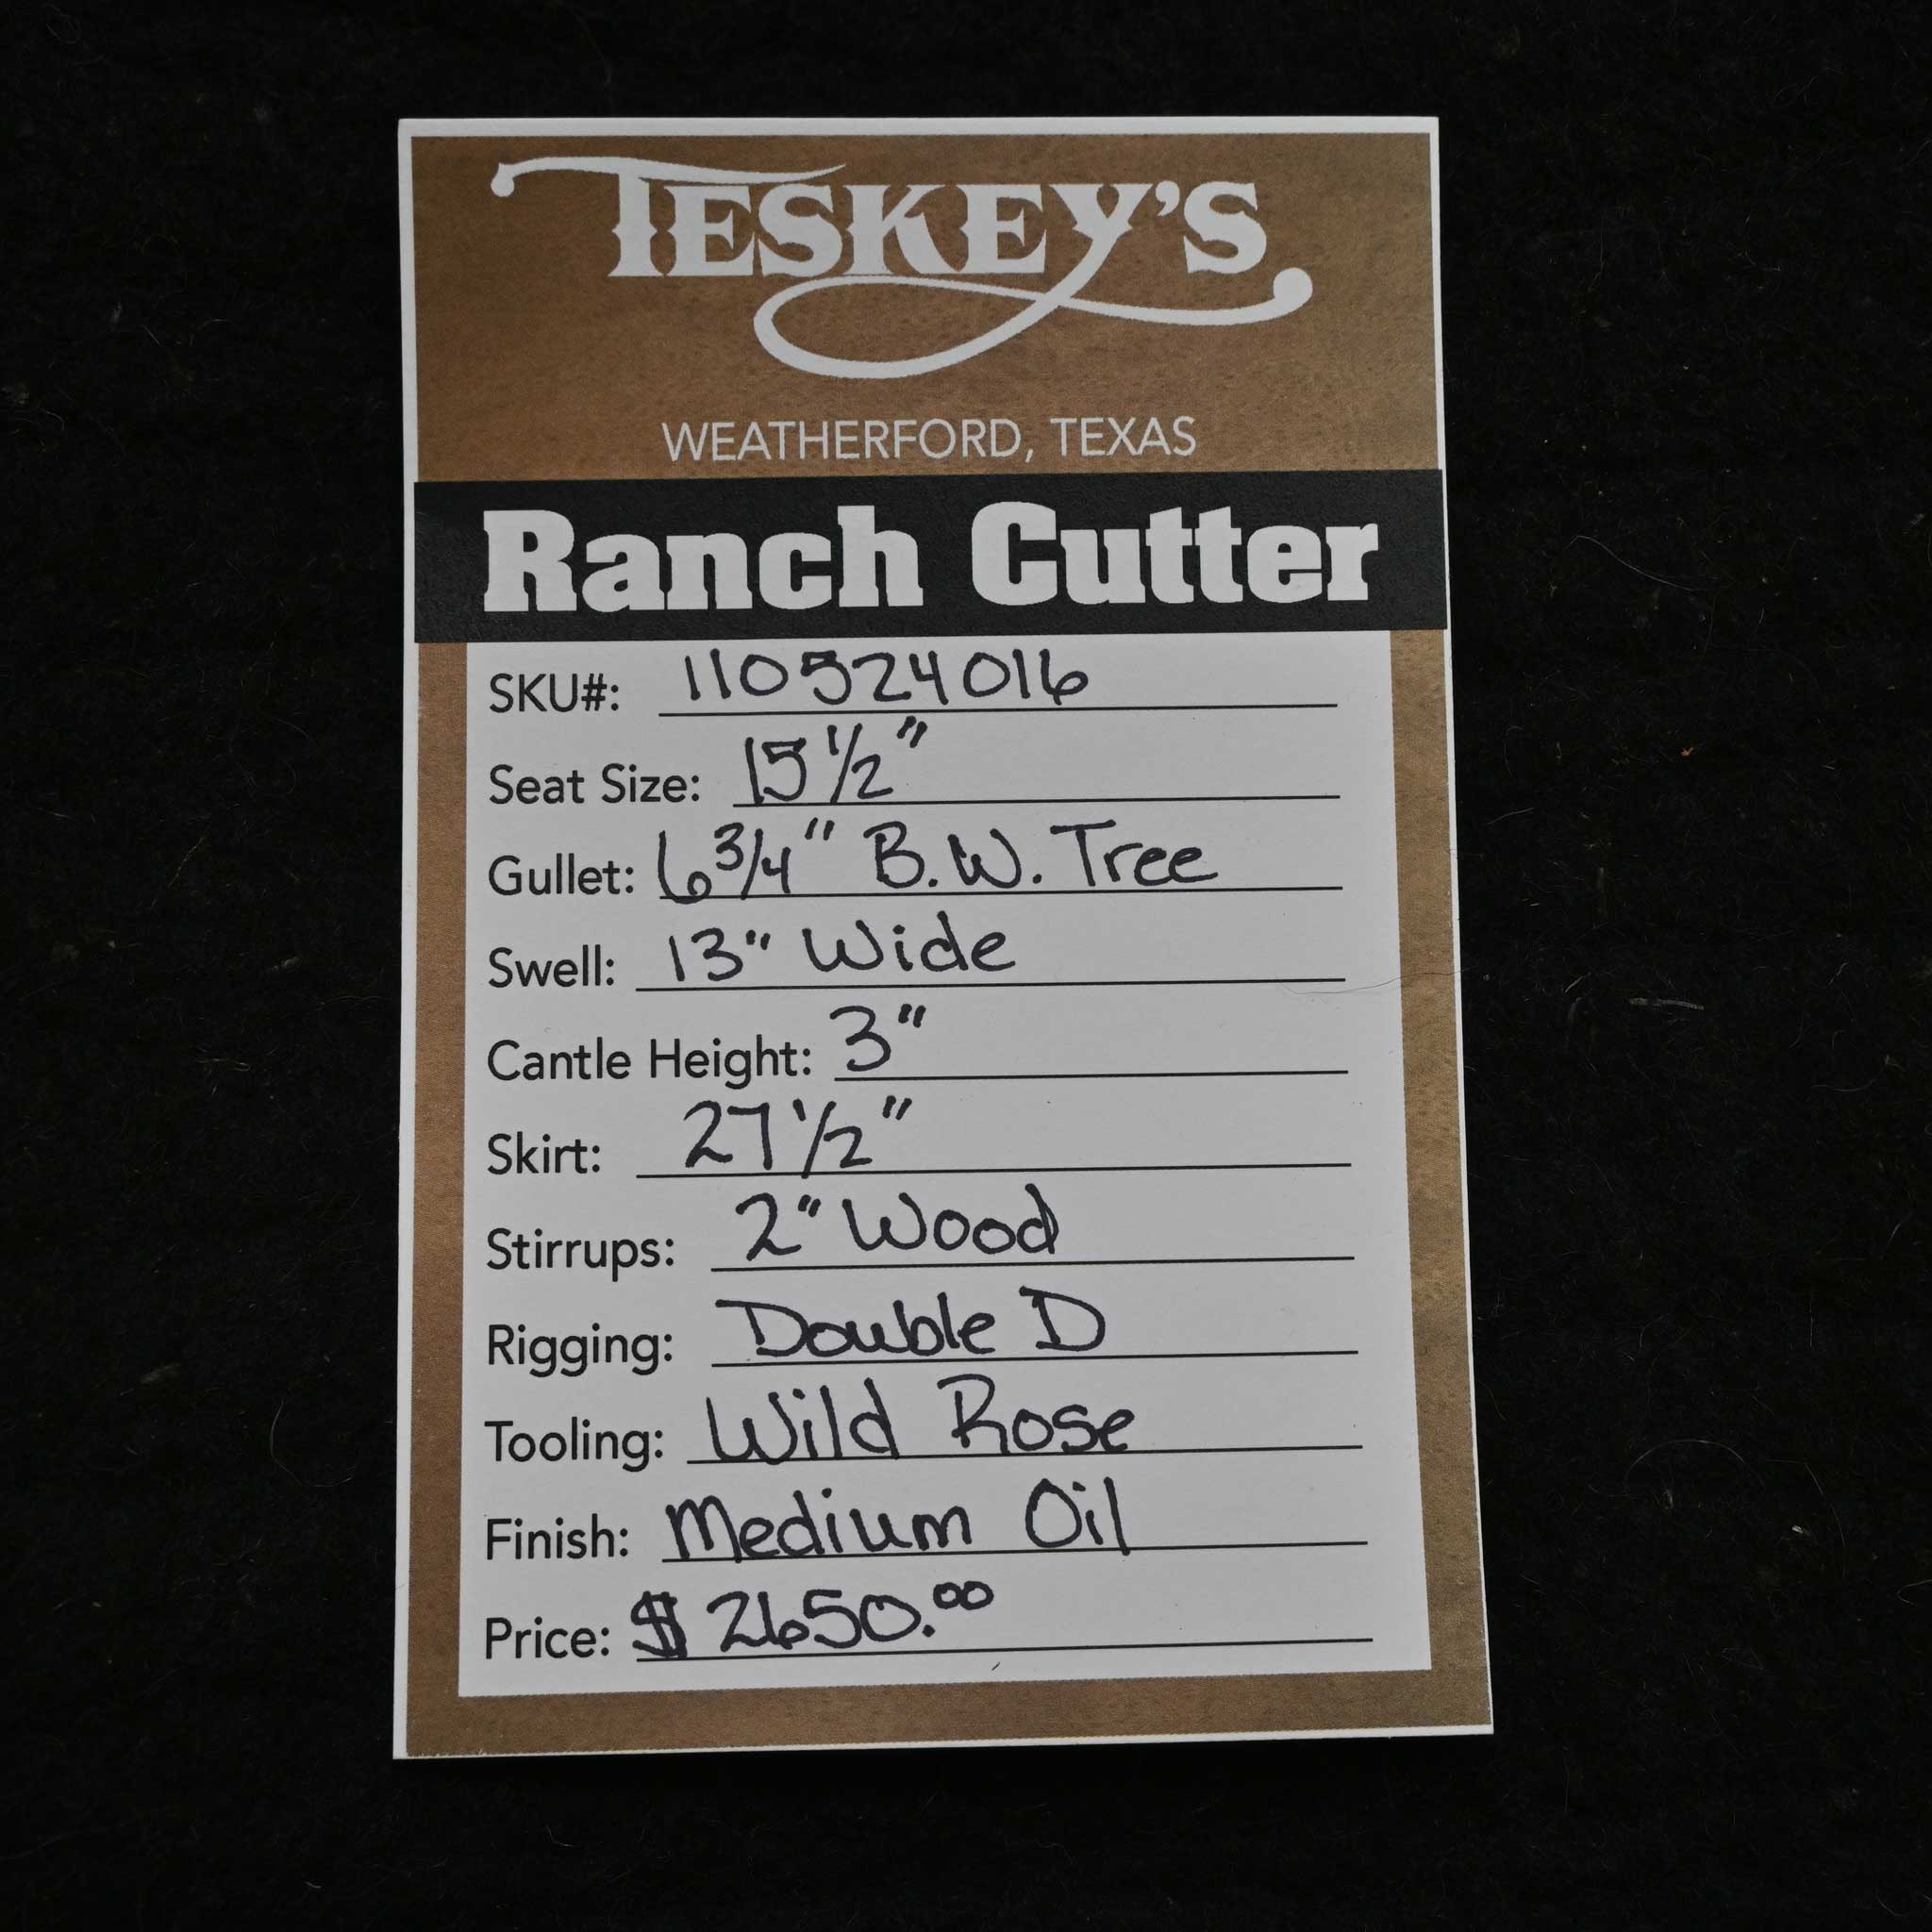 TESKEY'S
WEATHERFORD, TEXAS
Ranch Cutter
SKU#: 110524016
Seat Size: 15 1/2"
Gullet: 6 3/4" B.W. Tree
Swell: 13" Wide
Cantle Height: 3"
Skirt: 27 1/2"
Stirrups: 2" Wood
Rigging: Double D
Tooling: Wild Rose
Finish: Medium Oil
Price: $ 2650.00